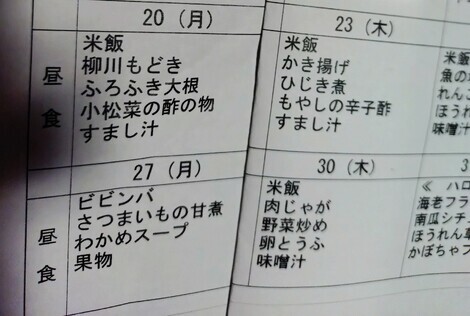 20（月）
昼食
米飯
柳川もどき
ふろふき大根
小松菜の酢の物
すまし汁
23（木）
米飯
かき揚げ
ひじき煮
もやしの辛子酢
すまし汁
米飯
魚の
れんこ
ほうれ
味噌汁
27（月）
昼食
ビビンバ
さつまいもの甘煮
わかめスープ
果物
30（木）
米飯
肉じゃが
野菜炒め
卵とうふ
味噌汁
3
≪ ハロ
海老フラ
南瓜シチ
ほうれん草
かぼちゃプ